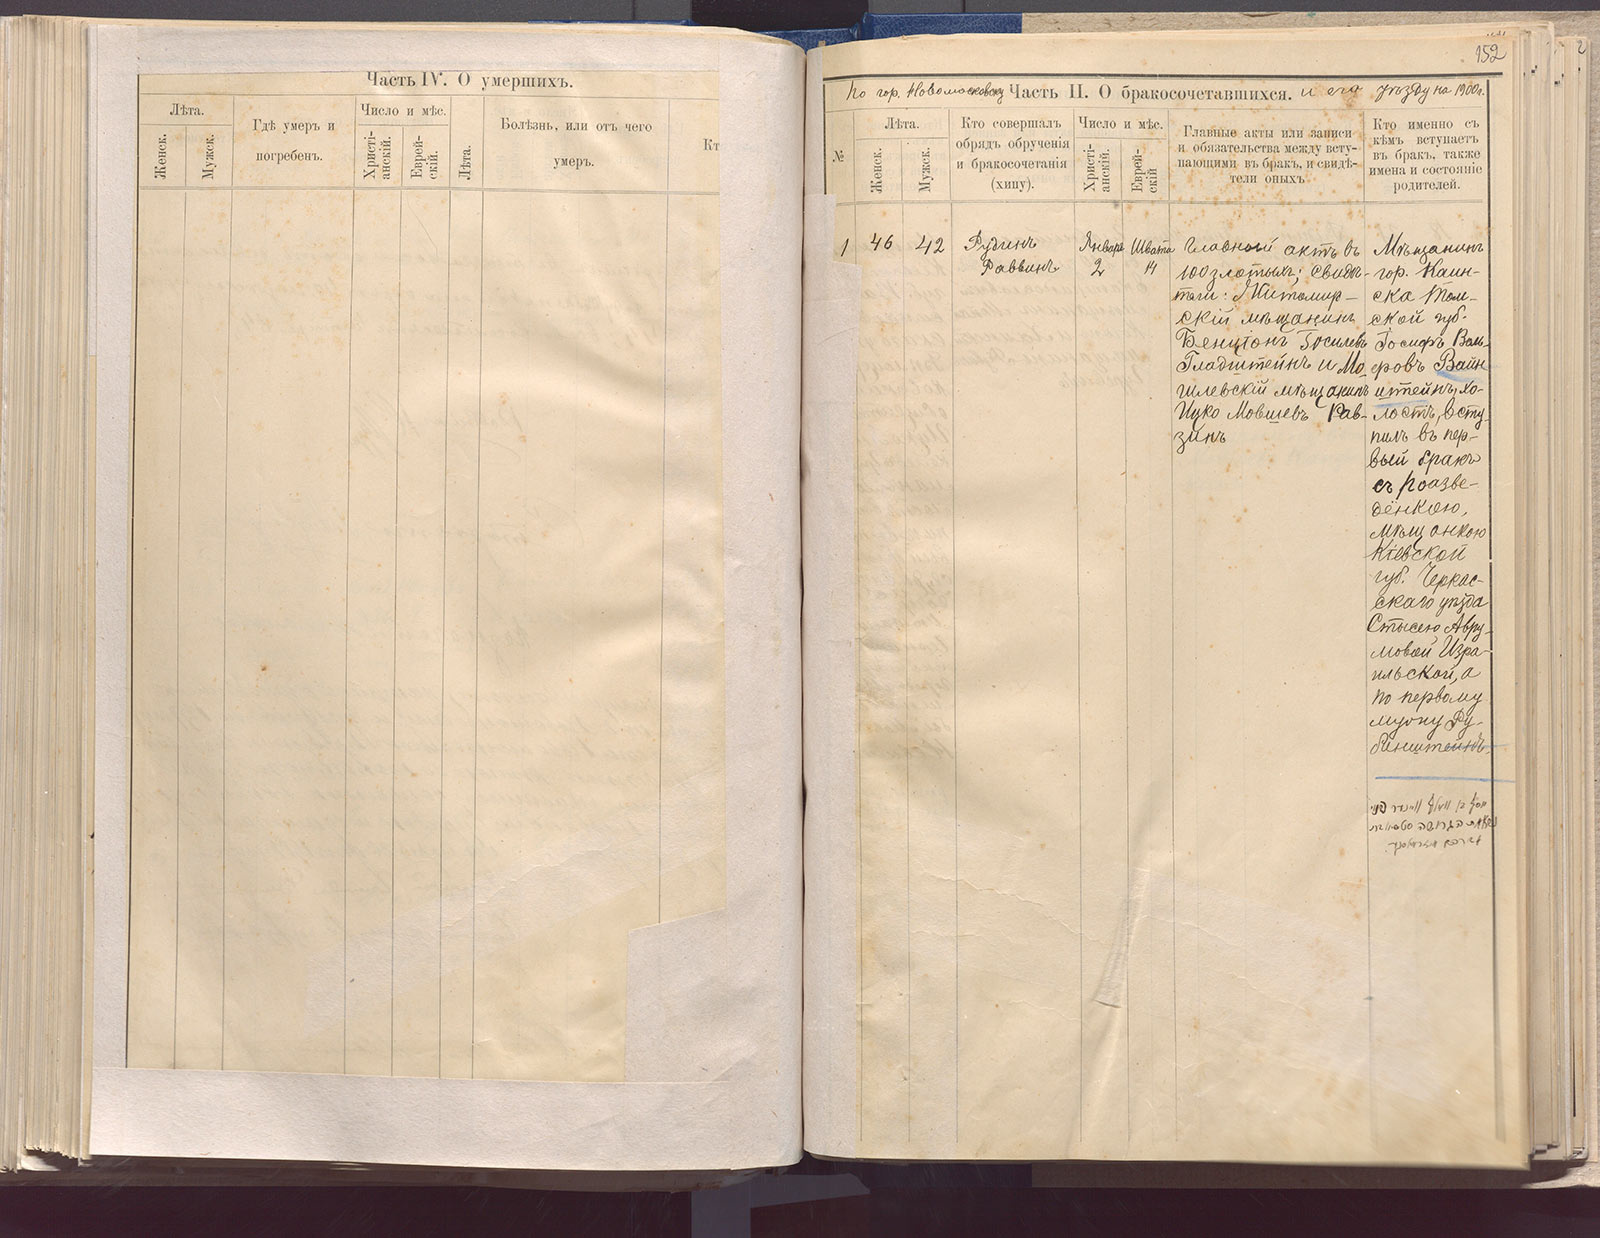 Часть IV. О умершихъ.
Лѣта.
Женск.
Мужск.
Гдѣ умеръ и
погребенъ.
Число и мѣс.
Христі-
анскій.
Еврей-
скій.
Лѣта.
Болѣзнь, или отъ чего
умеръ.
Кт
152
По гор. Новомосковску Часть II. О бракосочетавшихся. и его уѣзду на 1900 г.
№
Лѣта.
Женск.
Мужск.
Кто совершалъ
обрядъ обрученія
и бракосочетанія
(хипу).
Число и мѣс.
Христі-
анскій.
Еврей-
скій
Главные акты или записи
и обязательства между всту-
пающими въ бракъ, и свидѣ-
тели оныхъ
Кто именно съ
кѣмъ вступаетъ
въ бракъ, также
имена и состояніе
родителей.
1
46
42
Рубинъ
Раввинъ
Январь
2
Швата
14
Главный актъ въ
100 злотыхъ; свидѣ-
тели: Житомир-
скій мѣщанинъ
Бенціонъ Іосилевъ
Гладштейнъ и Мо
гилевскій мѣщанинъ
Ицко Мовшевъ Рав-
зинъ
Мѣщанинъ
гор. Каин-
ска Том-
ской губ.
Іосифъ Воль-
фовъ Вайн
штейнъ, хо-
лостъ, всту-
пилъ въ пер-
вый бракъ
съ разве-
денкою,
мѣщанкою
Кіевской
губ. Черкас-
скаго уѣзда
Стысею Авру-
мовой Изра-
ильской, а
по первому
мужу Ру-
бинштейнъ.